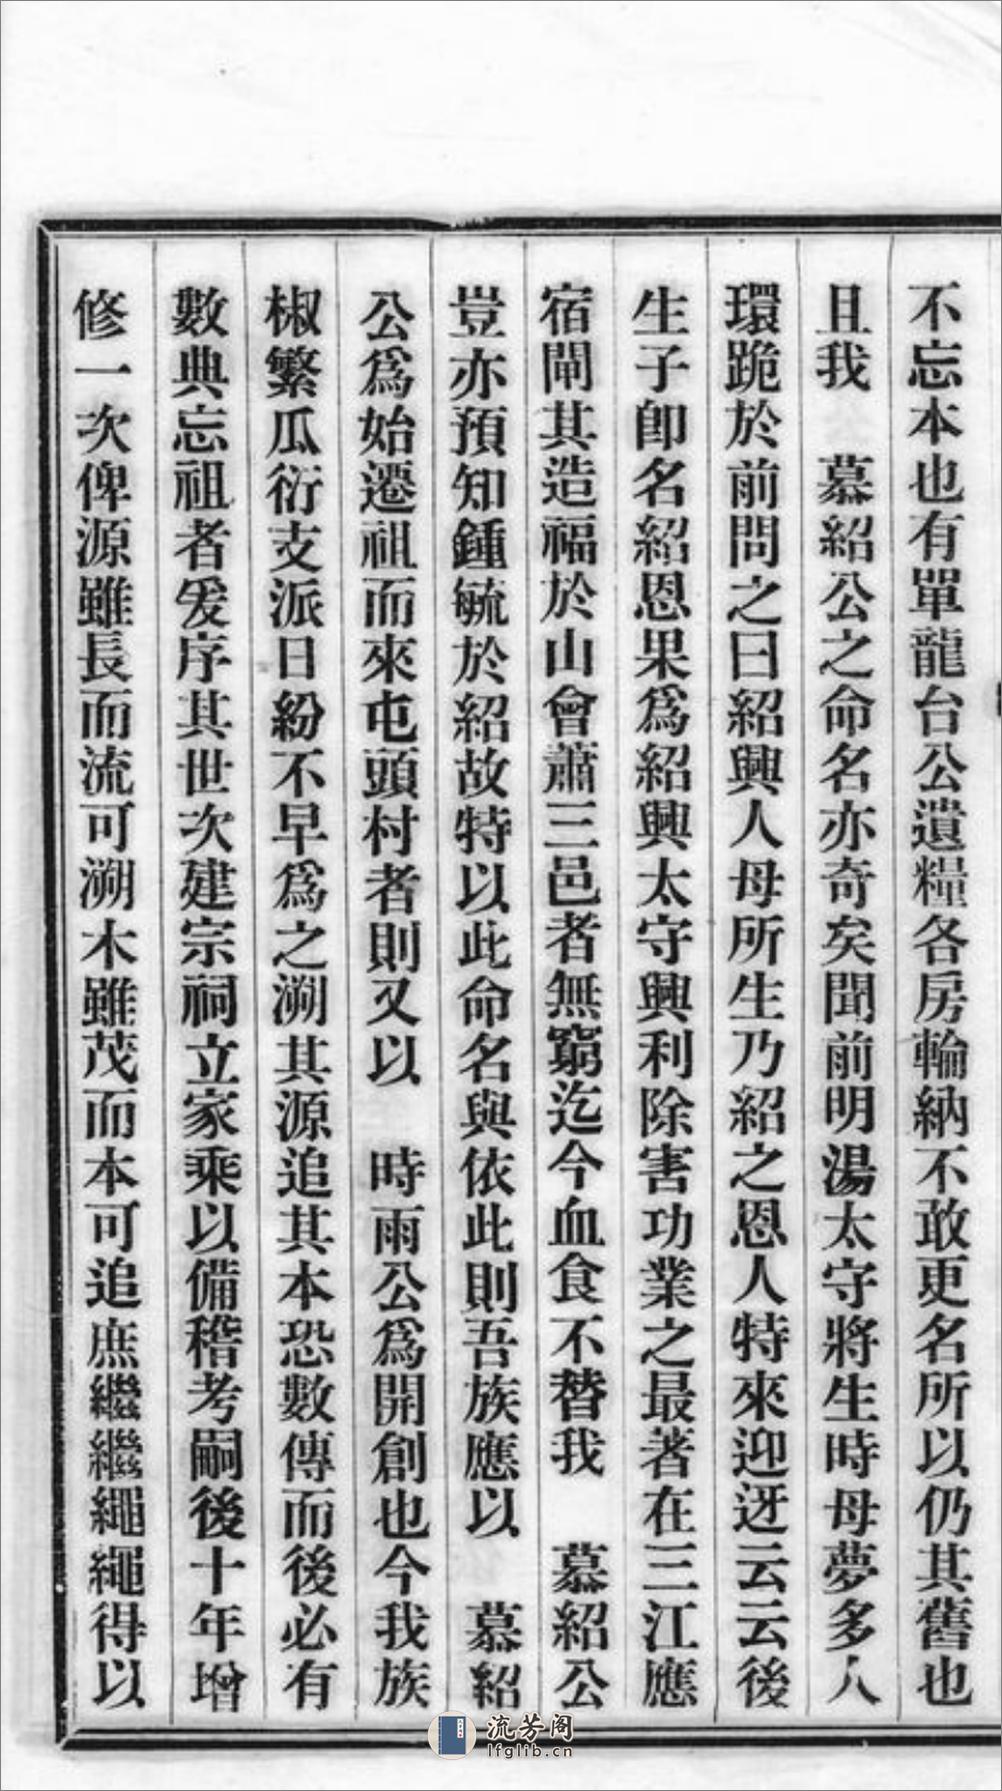 不忘本也有單龍台公遺糧各房輪納不敢更名所以仍其舊也
且我　慕紹公之命名亦奇矣聞前明湯太守將生時母夢多人
環跪於前問之曰紹興人母所生乃紹之恩人特來迎迓云云後
生子卽名紹恩果爲紹興太守興利除害功業之最著在三江應
宿閘其造福於山會蕭三邑者無窮迄今血食不替我　慕紹公
豈亦預知鍾毓於紹故特以此命名與依此則吾族應以　慕紹
公爲始遷祖而來屯頭村者則又以　時雨公爲開創也今我族
椒繁瓜衍支派日紛不早爲之溯其源追其本恐數傳而後必有
數典忘祖者爰序其世次建宗祠立家乘以備稽考嗣後十年增
修一次俾源雖長而流可溯木雖茂而本可追庶繼繼繩繩得以
流芳阁
lfglib.cn